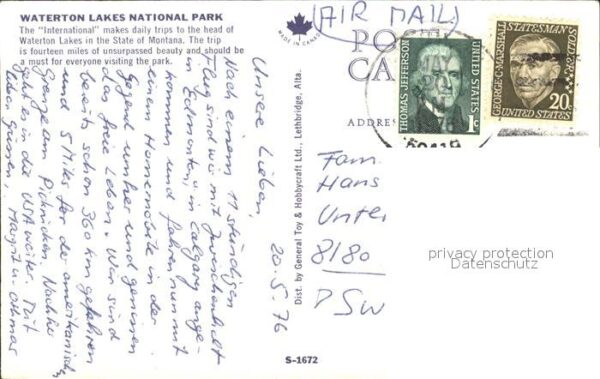 WATERTON LAKES NATIONAL PARK
The "International" makes daily trips to the head of
Waterton Lakes in the State of Montana. The trip
is fourteen miles of unsurpassed beauty and should be
a must for everyone visiting the park.
MADE IN CANADA
(AIR MAIL)
PO
CA
ADDRES
THOMAS JEFFERSON
UNITED STATES
1c
GEORGE C. MARSHALL
STATESMAN
SOLDIER
20c
UNITED STATES
20.5.76
Unsere Lieben,
Nach einem 11 stündigen
Flug sind wir mit Zwischenhalt
in Edmonton, in Calgary ange-
kommen und fahren nun mit
einem Homemobile in der
Gegend umher und geniessen
das freie Leben. Wir sind
bereits schon 360 km gefahren
und 5 Miles for der amerikanisch
Grenze am Picknicken. Nachher
geht es in die USA weiter. Mit
lieben Grüssen, Margrit u. Othmar
Dist. by General Toy & Hobbycraft Ltd., Lethbridge, Alta.
Fam.
Hans
Unter
8180
DSW
privacy protection
Datenschutz
S-1672